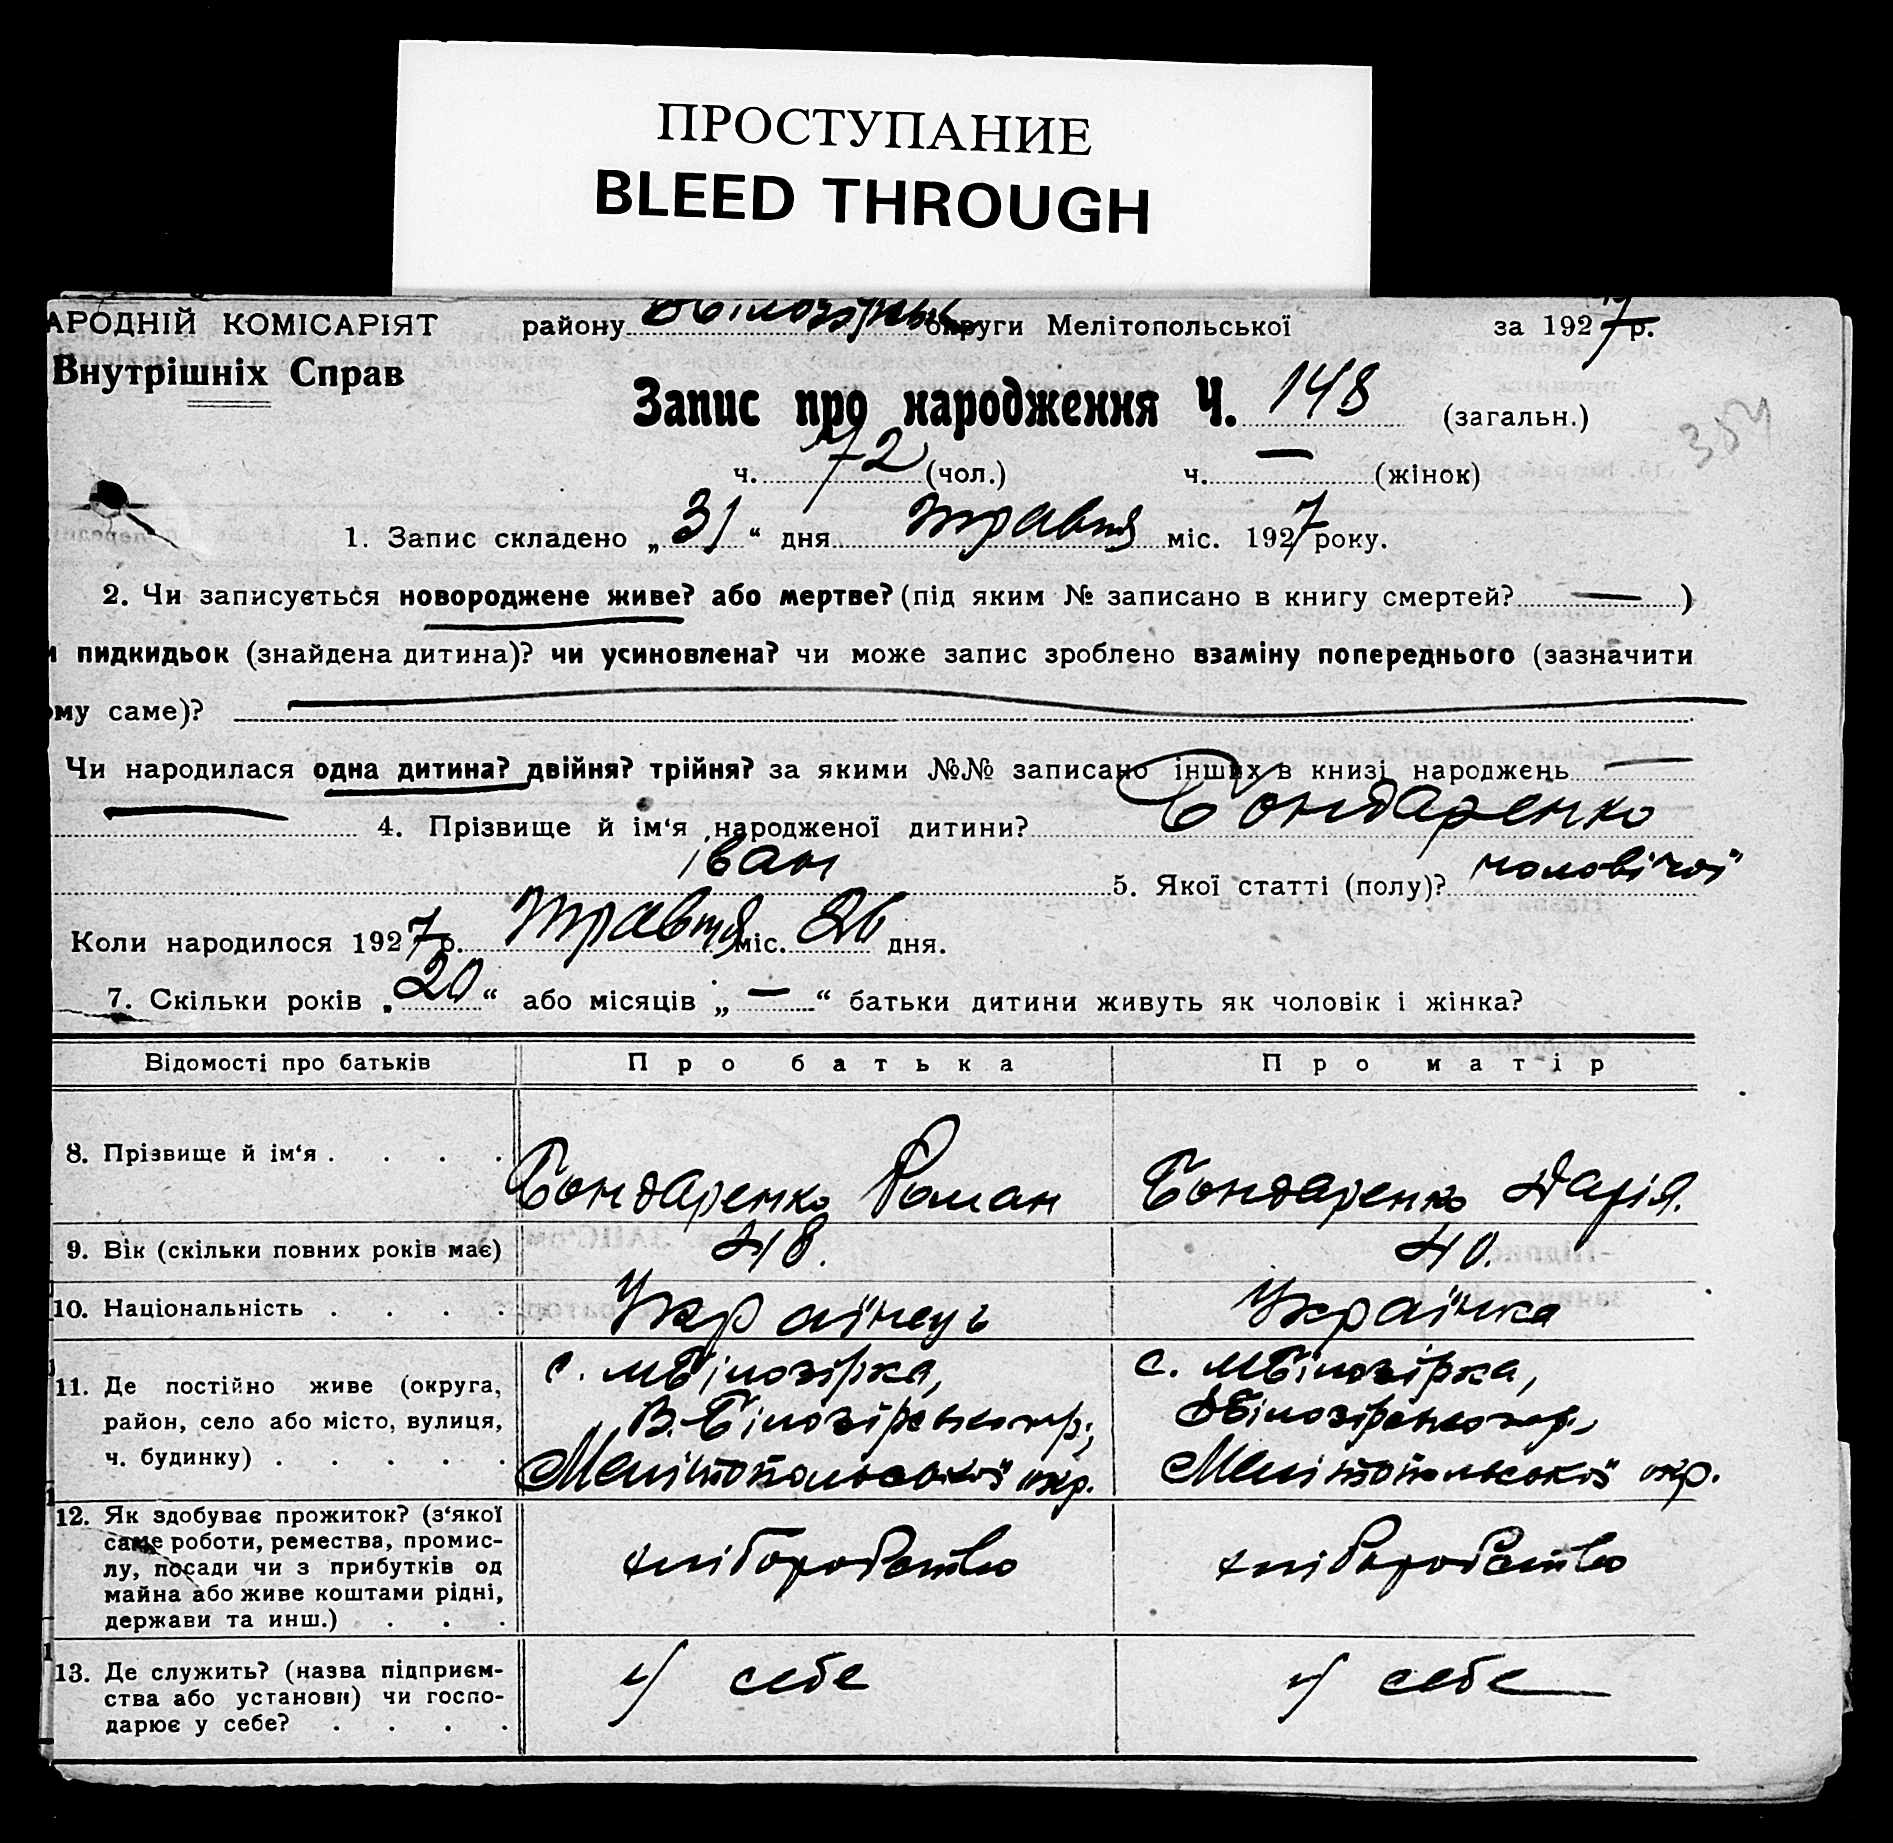 ПРОСТУПАНИЕ
BLEED THROUGH
АРОДНІЙ КОМІСАРІЯТ району округи Мелітопольської за 1927 р.
Внутрішніх Справ
Запис про народження Ч. 148 (загальн.)
354
ч. 72 (чол.) ч. — (жінок)
1. Запис складено „31“ дня травня міс. 1927 року.
2. Чи записується новороджене живе? або мертве? (під яким № записано в книгу смертей? — )
и пидкидьок (знайдена дитина)? чи усиновлена? чи може запис зроблено взаміну попереднього (зазначити
ому саме)?
Чи народилася одна дитина? двійня? трійня? за якими №№ записано інших в книзі народжень —
— 4. Прізвище й ім‘я народженої дитини? Бондаренко
Іван 5. Якої статті (полу)? чоловічої
Коли народилося 1927 р. травня міс. 26 дня.
7. Скільки років „20“ або місяців „—“ батьки дитини живуть як чоловік і жінка?
Відомості про батьків Про батька Про матір
8. Прізвище й ім‘я . . . . Бондаренко Роман Бондаренко Дарія.
9. Вік (скільки повних років має) 48. 40.
10. Національність . . . . Українець Українка
11. Де постійно живе (округа, с. МБілозірка, с. МБілозірка,
район, село або місто, вулиця, В.-Білозірського р., ВБілозірського р.,
ч. будинку) . . . . . Мелітопольської окр. Мелітопольської окр.
12. Як здобуває прожиток? (з‘якої
саме роботи, ремества, промис-
лу, посади чи з прибутків од хліборобство хліборобство
майна або живе коштами рідні,
держави та инш.) . . .
13. Де служить? (назва підприєм- у себе у себе
ства або установи) чи госпо-
дарює у себе? . . . .